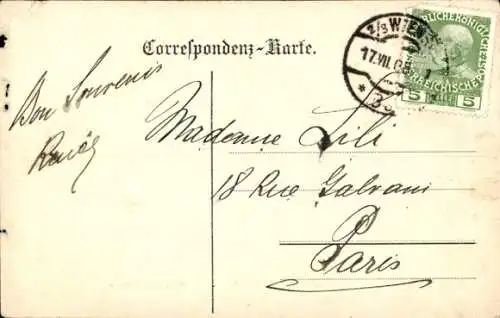 Correspondenz-Karte.
2/3 WIEN
17.VII.
KAISERLICHE KÖNIGLICHE
ÖSTERREICHISCHE POST
5 5
Bon Souvenir
Madame Lili
18 Rue Galvani
Paris